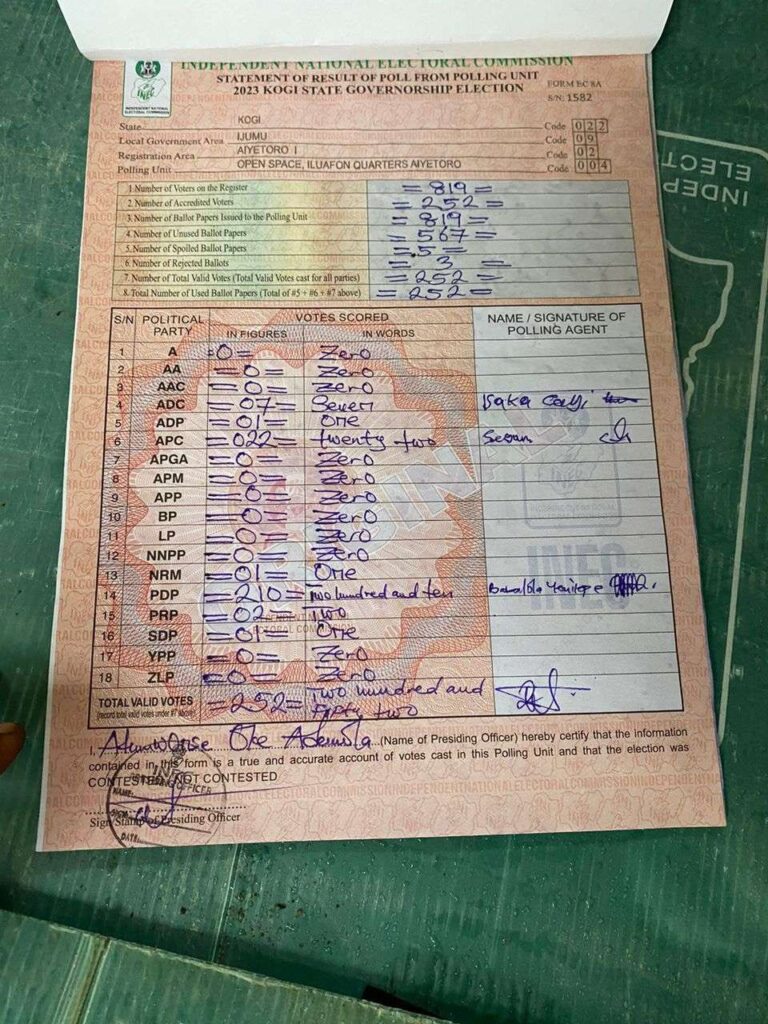 INDEPENDENT NATIONAL ELECTORAL COMMISSION
STATEMENT OF RESULT OF POLL FROM POLLING UNIT
2023 KOGI STATE GOVERNORSHIP ELECTION
FORM EC 8A
S/N: 1582
INEC
INDEPENDENT NATIONAL ELECTORAL COMMISSION
State KOGI Code 022
Local Government Area IJUMU Code 09
Registration Area AIYETORO I Code 02
Polling Unit OPEN SPACE, ILUAFON QUARTERS AIYETORO Code 004
1. Number of Voters on the Register =819=
2. Number of Accredited Voters =252=
3. Number of Ballot Papers Issued to the Polling Unit =819=
4. Number of Unused Ballot Papers =567=
5. Number of Spoiled Ballot Papers =5=
6. Number of Rejected Ballots = 3 =
7. Number of Total Valid Votes (Total Valid Votes cast for all parties) =252=
8. Total Number of Used Ballot Papers (Total of #5 + #6 + #7 above) =252=
S/N POLITICAL PARTY VOTES SCORED NAME / SIGNATURE OF POLLING AGENT
IN FIGURES IN WORDS
1 A =0= Zero
2 AA =0= Zero
3 AAC =0= Zero
4 ADC =07= Seven
5 ADP =01= One
6 APC =022= twenty two Segun
7 APGA =0= Zero
8 APM =0= Zero
9 APP =0= Zero
10 BP =0= Zero
11 LP =0= Zero
12 NNPP =0= Zero
13 NRM =01= One
14 PDP =210= Two hundred and ten
15 PRP =02= Two
16 SDP =01= One
17 YPP =0= Zero
18 ZLP =0= Zero
TOTAL VALID VOTES =252= Two hundred and
(record total valid votes under #7 above) Fifty two
I, Oke Ademola (Name of Presiding Officer) hereby certify that the information
contained in this form is a true and accurate account of votes cast in this Polling Unit and that the election was
CONTESTED / NOT CONTESTED
Sign/Stamp of Presiding Officer
INEC
OFFICER
NAME
SIGN
DATE
ORIGINAL
INEC
INDEP
ELECT